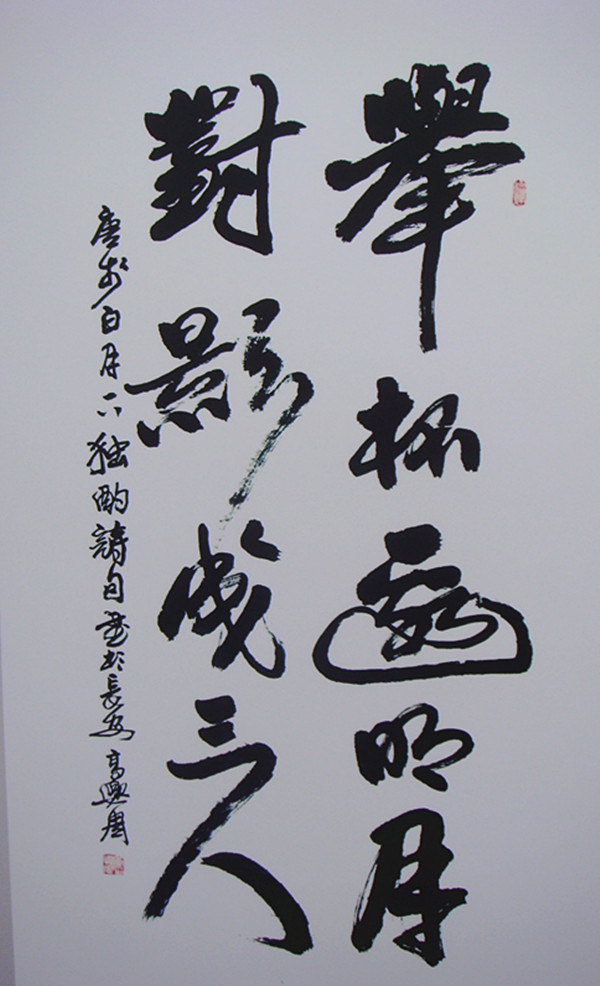 舉杯邀明月
對影成三人
唐李白月下獨酌詩句書於長安高興周